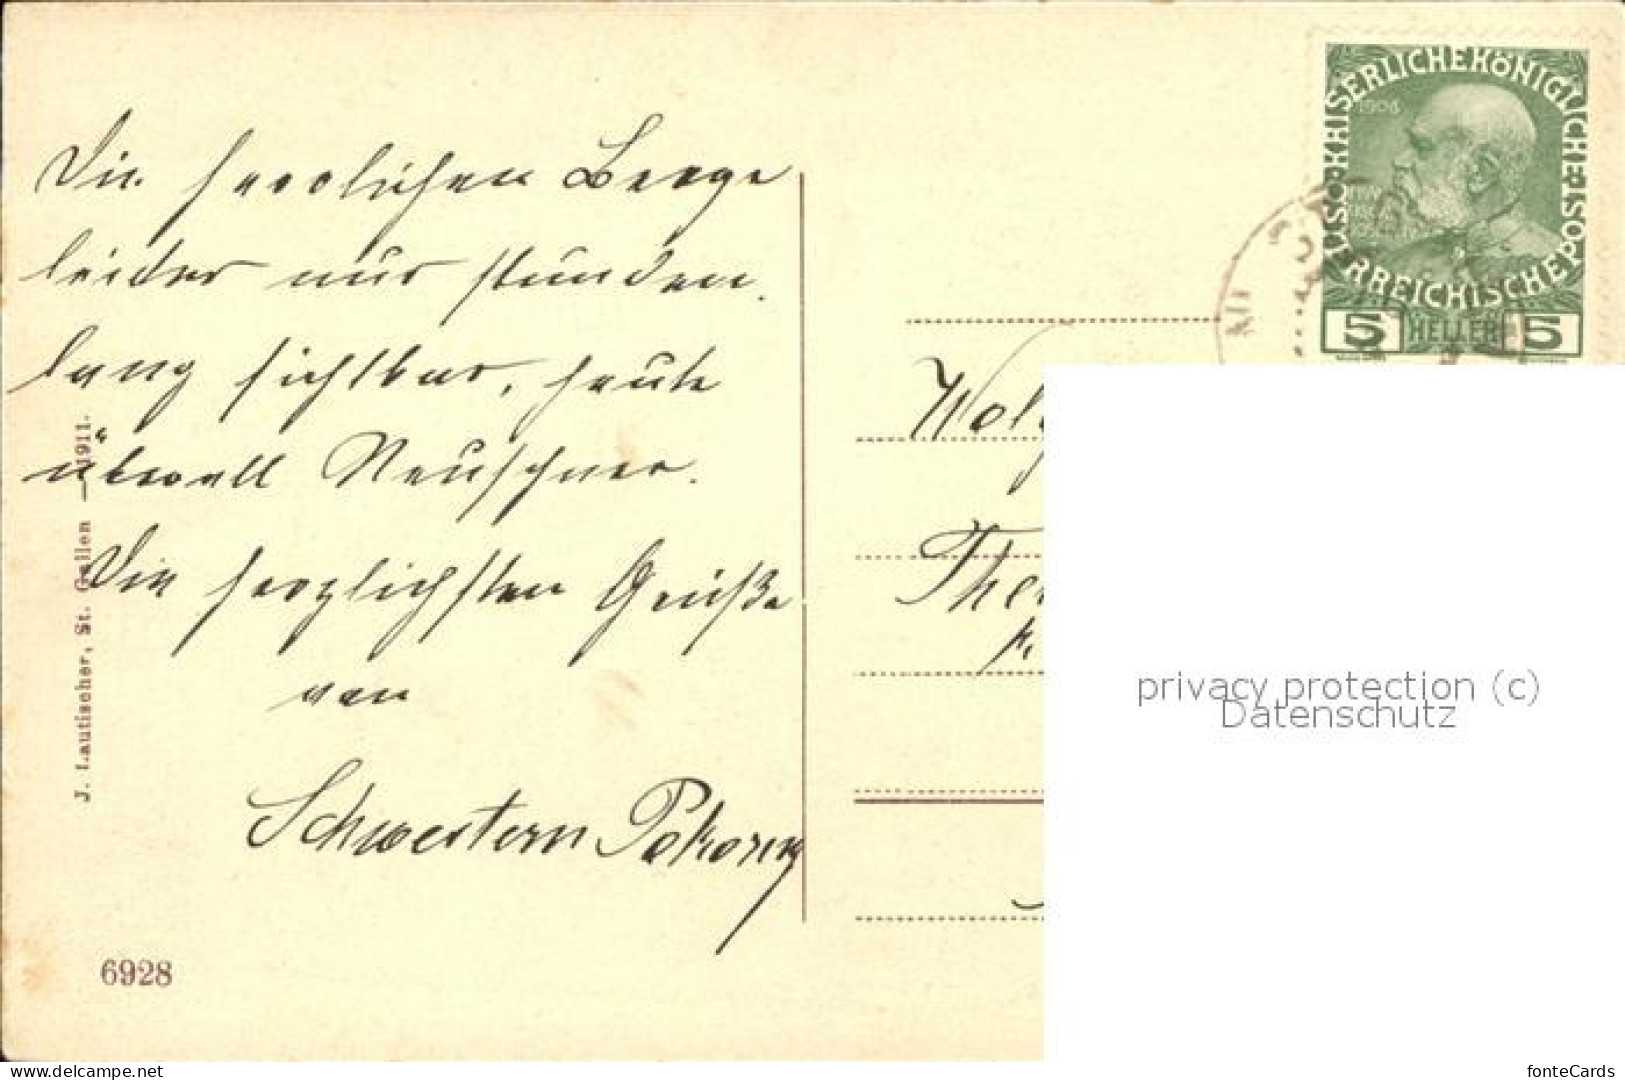 Die herrlichen Berge
leider nur stunden
lang sichtbar, heute
überall Neuschnee.
Die herzlichsten Grüße
von
Schwestern Pokorny
J. Lautischer, St. Gallen — 1911.
6928
KAISERLICHE KÖNIGLICHE ÖSTERREICHISCHE POST
1908
5 HELLER 5
The
k.
privacy protection (c)
Datenschutz
www.delcampe.net
fonteCards